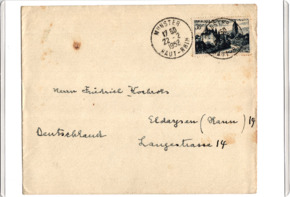 MUNSTER
17 30
22 - 2
1952
HAUT-RHIN
Herrn Friedrich
Eldagsen (Hann) 14
Deutschland
Langestrasse 14